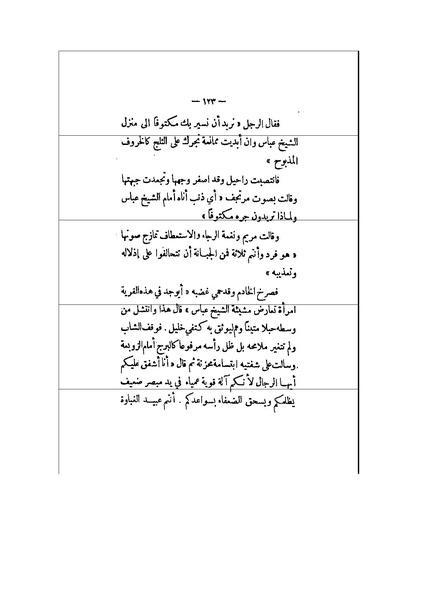 — ١٢٣ —
فقال الرجل « نريد أن نسير بك مكتوفًا الى منزل
الشيخ عباس وان أبديت ممانعة نجرك على الثلج كالخروف
المذبوح »
فانتصبت راحيل وقد اصفر وجهها وتجعدت جبهتها
وقالت بصوت مرتجف « أي ذنب أتاه أمام الشيخ عباس
ولماذا تريدون جره مكتوفًا »
وقالت مريم ونغمة الرجاء والاستعطاف تمازج صوتها
« هو فرد وأنتم ثلاثة فمن الجبانة أن تتحالفوا على إذلاله
وتعذيبه »
فصرخ الخادم وقد حمي غضبه « أيوجد في هذه القرية
امرأة تعارض مشيئة الشيخ عباس » قال هذا وانتشل من
وسطه حبلا متينًا وهم ليوثق به كتفي خليل . فوقف الشاب
ولم تتغير ملامحه بل ظل رأسه مرفوعا كالبرج أمام الزوبعة
.وسالت على شفتيه ابتسامة محزنة ثم قال « أنا أشفق عليكم
أيها الرجال لأنكم آلة قوية عمياء في يد مبصر ضعيف
يظلمكم ويسحق الضعفاء بسواعدكم . أنتم عبيد الغباوة